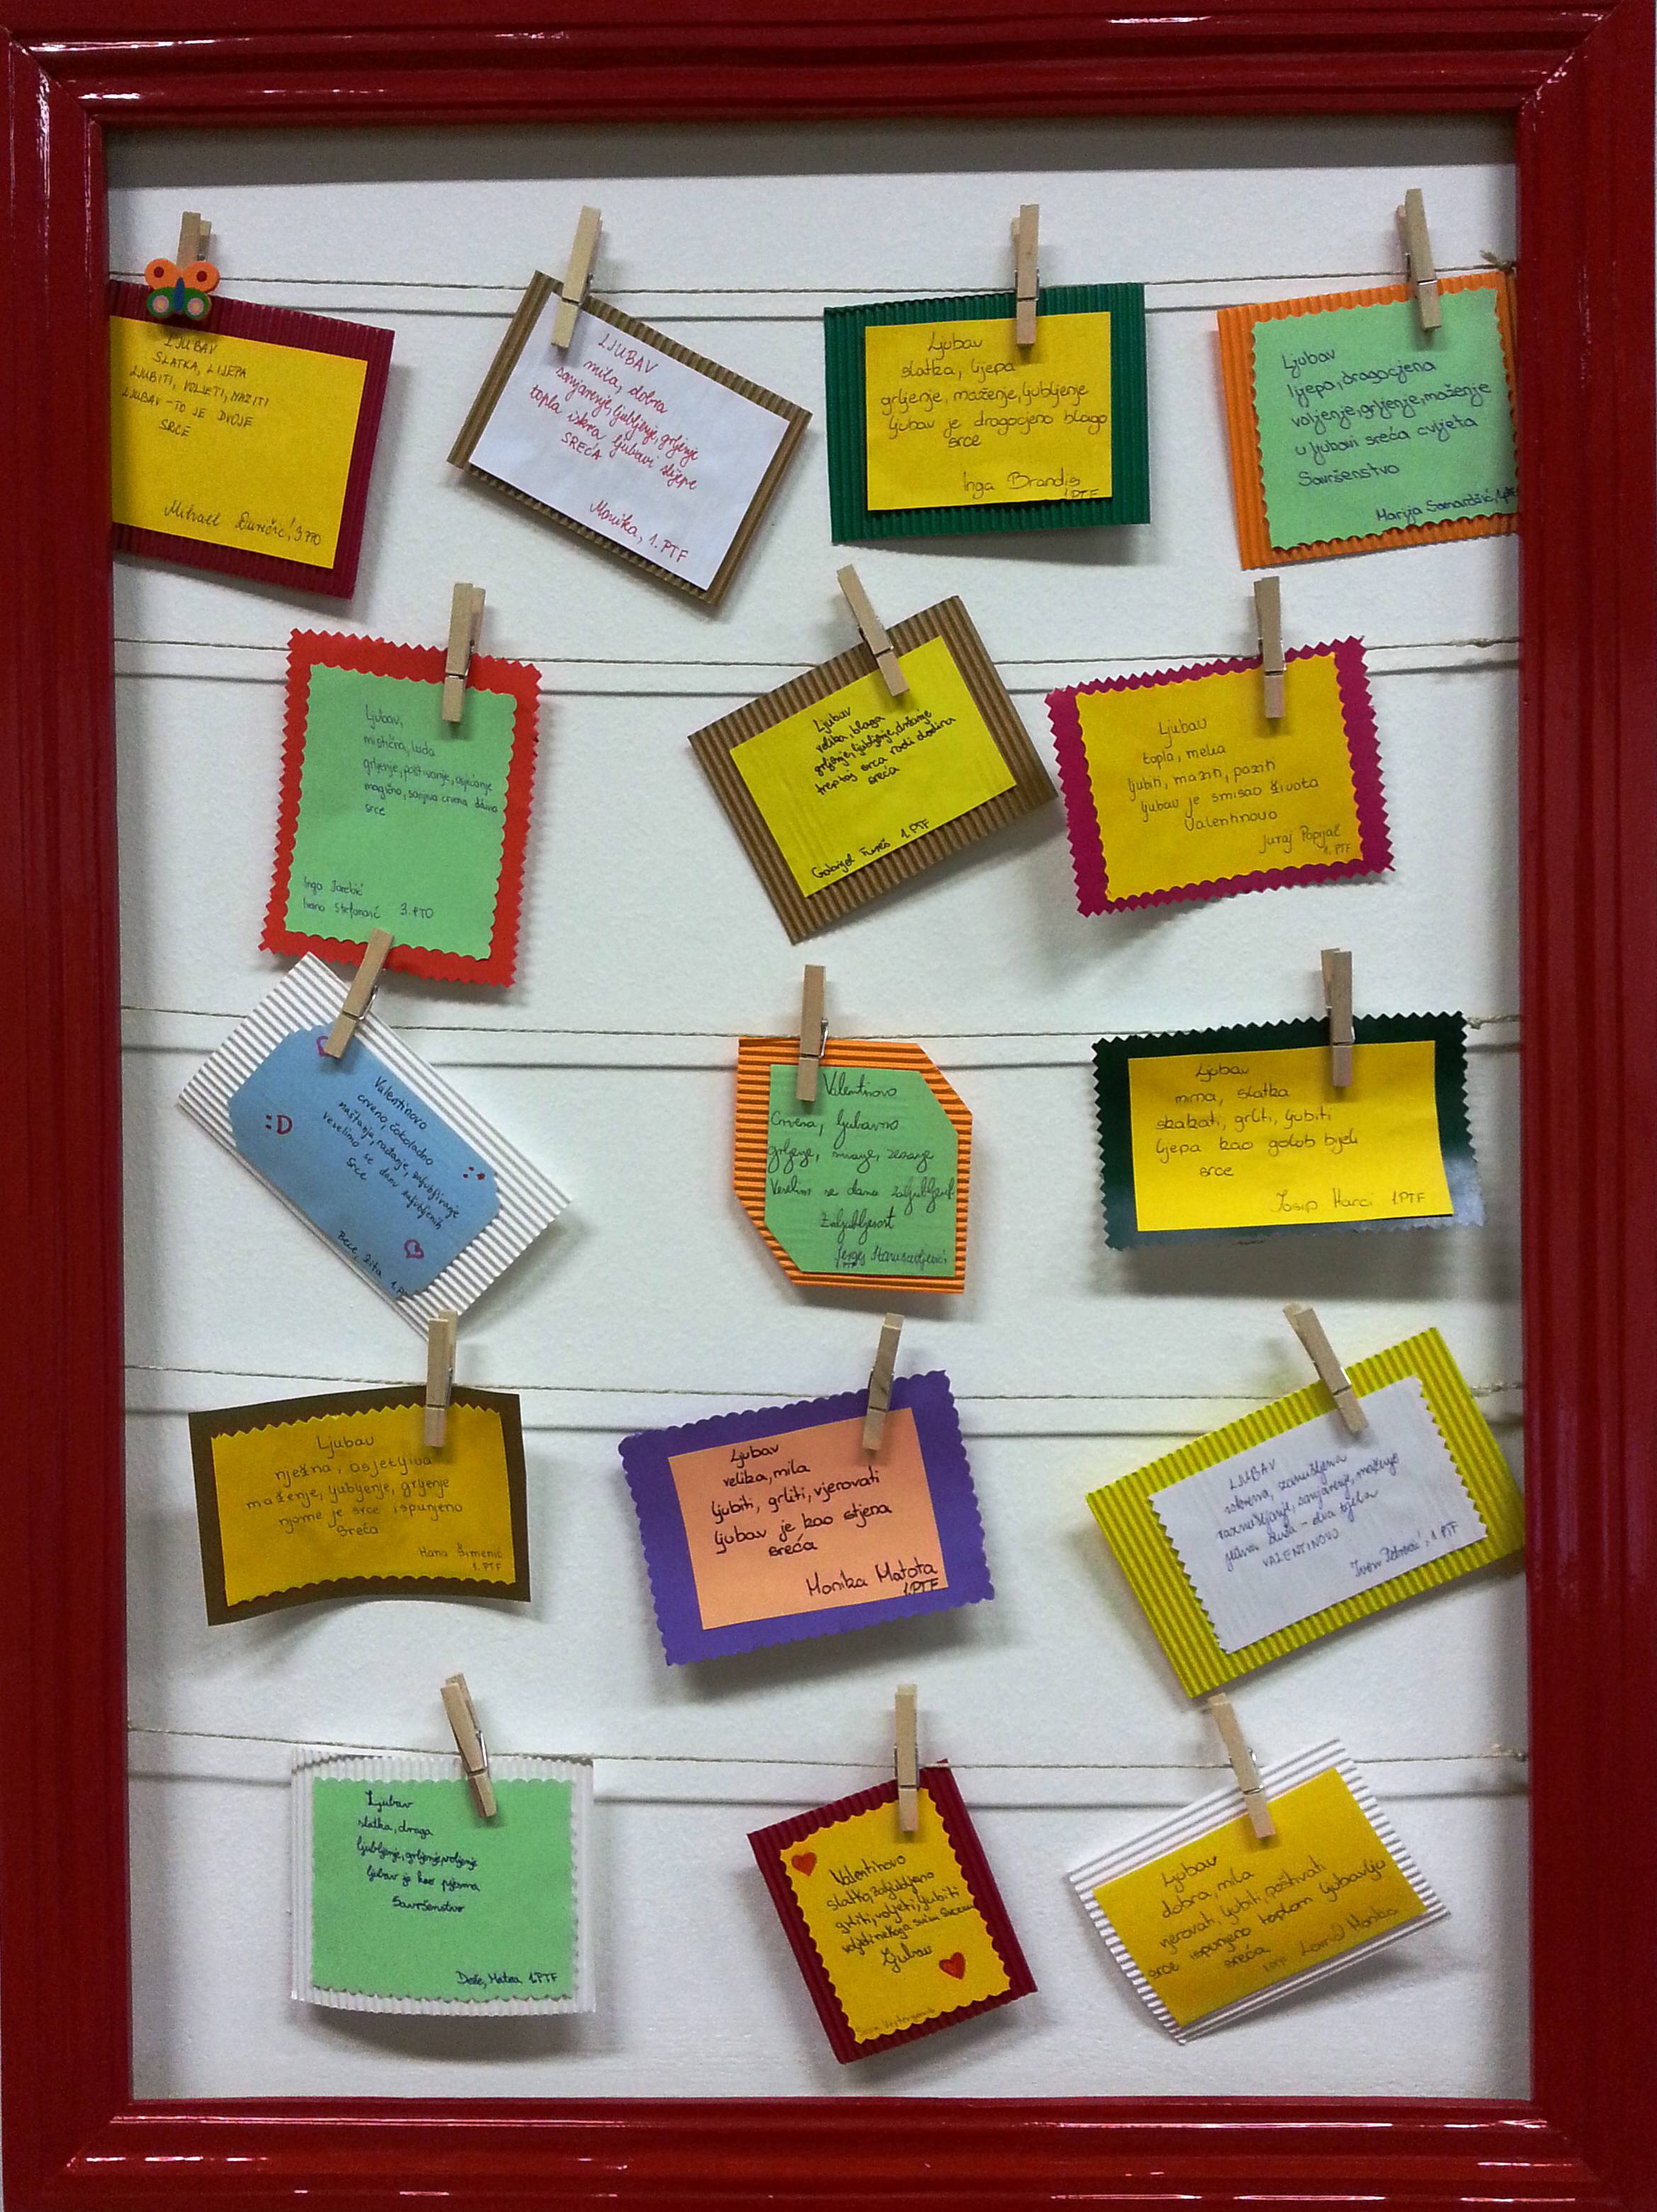 LJUBAV
SLATKA, LIJEPA
LJUBITI, VOLJETI, MAZITI
LJUBAV - TO JE DVOJE
SRCE
3.PTO
LJUBAV
mila, dobra
sanjarenje, ljubljenje, grljenje
topla iskra ljubavi slijepe
SREĆA
Monika, 1.PTF
Ljubav
slatka, lijepa
grljenje, maženje, ljubljenje
ljubav je dragocjeno blago
srce
Inga Brandis
1.PTF
Ljubav
lijepa, dragocjena
voljenje, grljenje, maženje
u ljubavi sreća cvjeta
Savršenstvo
Marija Samardžić, 1.PTF
Ljubav,
mistična, luda
grljenje, poštivanje, osjećanje
magična, sanjiva crvena
srce
Inga
Ivano Stefanović 3.PTO
Ljubav
velika, blaga
grljenje, ljubljenje, držanje
treptaj srca radi dodira
sreća
Gabrijel 1.PTF
Ljubav
topla, meka
ljubiti, maziti, paziti
ljubav je smisao života
Valentinovo
Juraj Popijač
1.PTF
Valentinovo
crveno, čokoladno
maštanje, zaljubljivanje
veselimo se danu zaljubljenih
Srce
:D
Valentinovo
Crvena, ljubavno
grljenje,
Veselim se danu
Zaljubljenost
Ljubav
mirna, slatka
skakati, grliti, ljubiti
ljepa kao golob bijeli
srce
Josip Harci 1.PTF
Ljubav
nježna, osjetljiva
maženje, ljubljenje, grljenje
njome je srce ispunjeno
Sreća
Hana Šimenić
1.PTF
Ljubav
velika, mila
ljubiti, grliti, vjerovati
ljubav je kao stjena
sreća
Monika Matota
1.PTF
LJUBAV
iskrena, zamišljena
razmišljanje, sanjarenje, maženje
jedna duša - dva tijela
VALENTINOVO
1.PTF
Ljubav
slatka, draga
ljubljenje, grljenje, voljenje
ljubav je kao pjesma
Savršenstvo
Matea 1.PTF
Valentinovo
slatko, zaljubljeno
grliti, voljeti, ljubiti
voljeti nekoga svim srcem
Ljubav
Ljubav
dobra, mila
vjerovati, ljubiti, poštivati
srce ispunjeno toplom ljubavlju
sreća
Monika